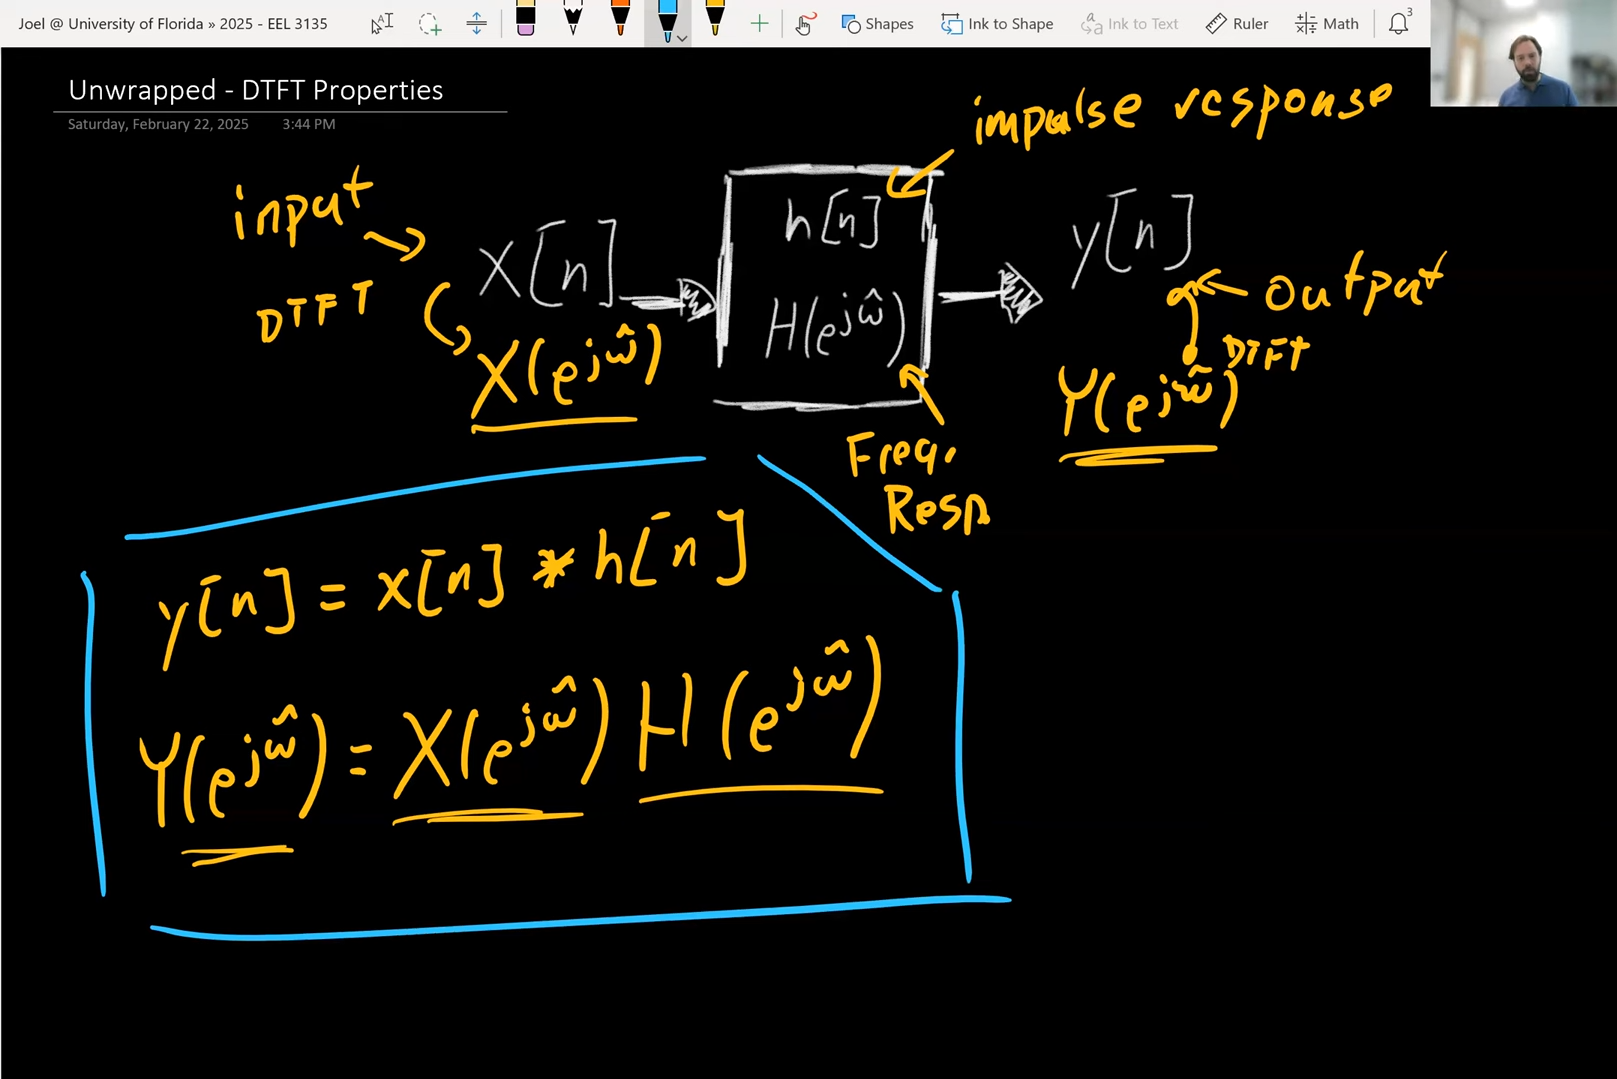 Joel @ University of Florida » 2025 - EEL 3135
Shapes
Ink to Shape
Ink to Text
Ruler
Math
3
Unwrapped - DTFT Properties
Saturday, February 22, 2025 3:44 PM
impulse response
input
x[n]
h[n]
y[n]
output
DTFT
X(e^{jω̂})
H(e^{jω̂})
DTFT
Y(e^{jω̂})
Freq.
Resp
y[n] = x[n] * h[n]
Y(e^{jω̂}) = X(e^{jω̂}) H(e^{jω̂})